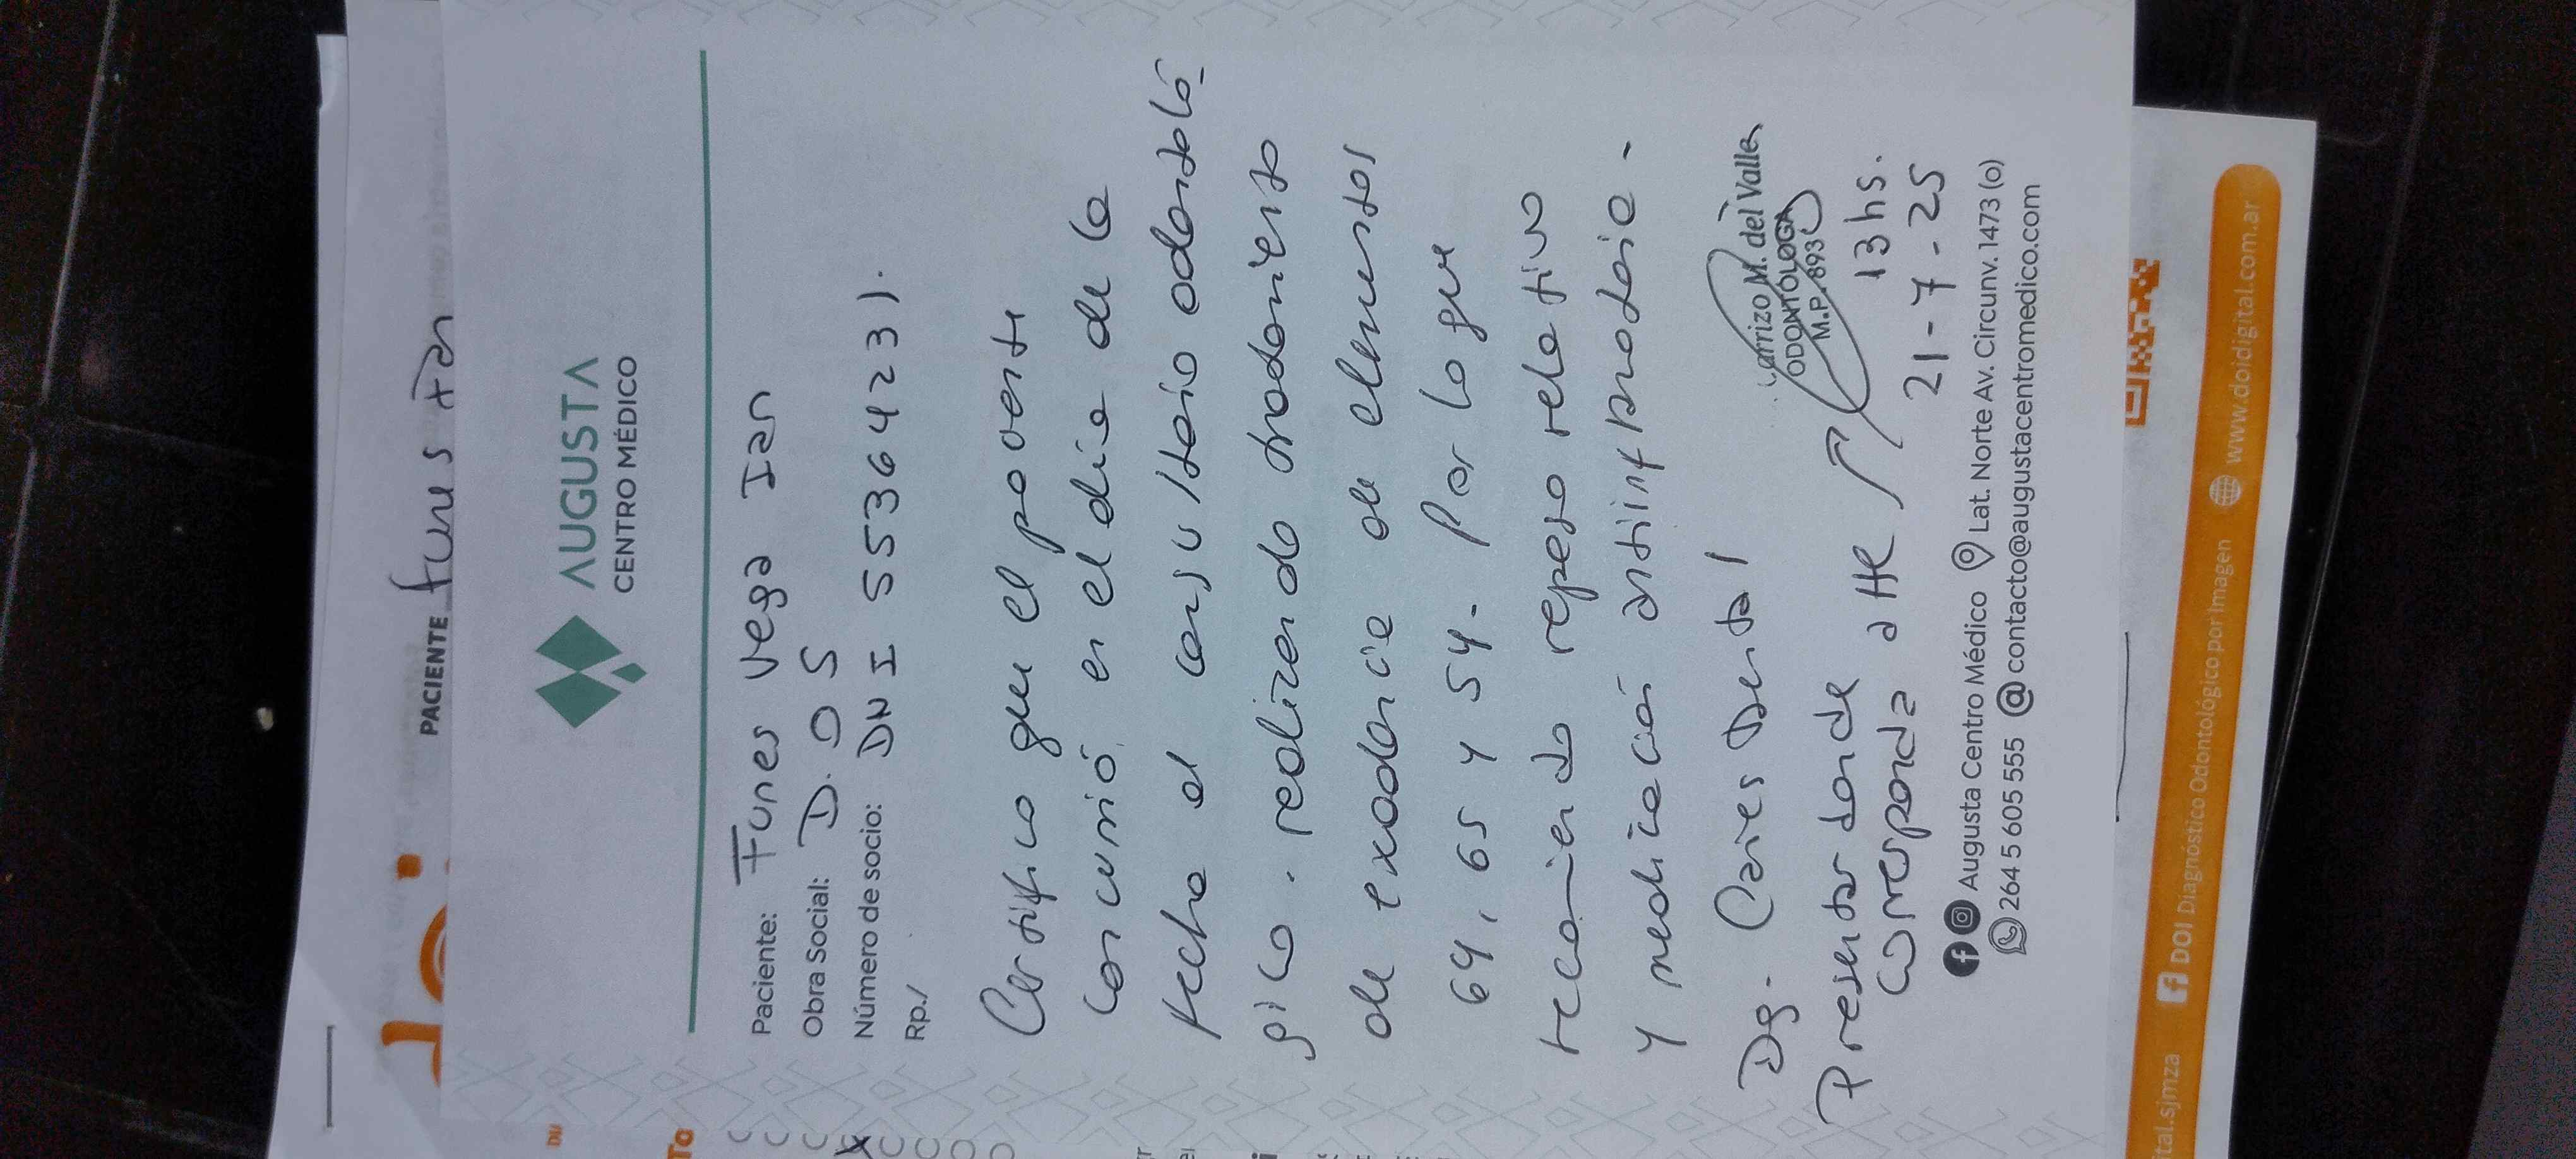 PACIENTE Funes Ian
AUGUSTA
CENTRO MÉDICO
Paciente: Funes Vega Ian
Obra Social: D.O S
Número de socio: DNI 55364231.
Rp./
Certifico que el paciente
concurrió en el día de la
fecha al consultorio odontoló
gico. realizando tratamiento
de exodoncia de elementos
64, 65 y 54. Por lo que
recomiendo reposo relativo
y medicación
Dg. Caries Dental
Carrizo M. del Valle
ODONTÓLOGA
M.P. 893
Presentar donde
corresponda atte
13 hs.
21-7-25
Augusta Centro Médico Lat. Norte Av. Circunv. 1473 (o)
264 5 605 555 @ contacto@augustacentromedico.com
ital.sjmza DOI Diagnóstico Odontológico por Imagen www.doidigital.com.ar